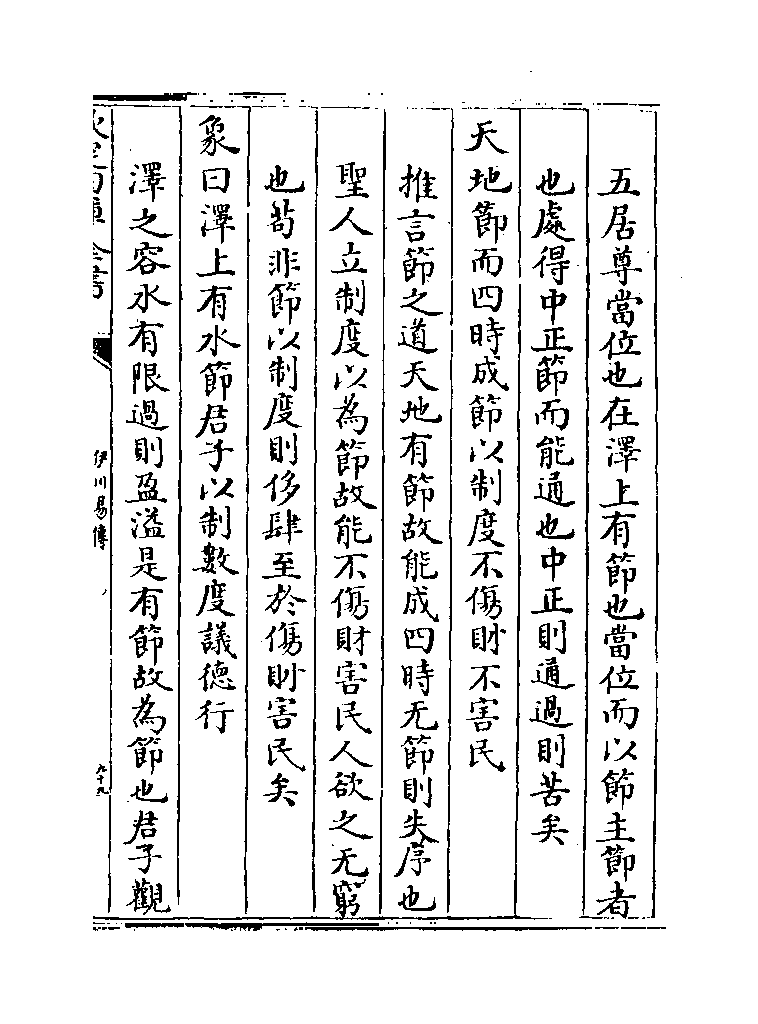 五居尊當位也在澤上有節也當位而以節主節者
也處得中正節而能通也中正則通過則苦矣
天地節而四時成節以制度不傷財不害民
推言節之道天地有節故能成四時无節則失序也
聖人立制度以為節故能不傷財害民人欲之无窮
也茍非節以制度則侈肆至於傷財害民矣
象曰澤上有水節君子以制數度議德行
澤之容水有限過則盈溢是有節故為節也君子觀
伊川易傳
九十九